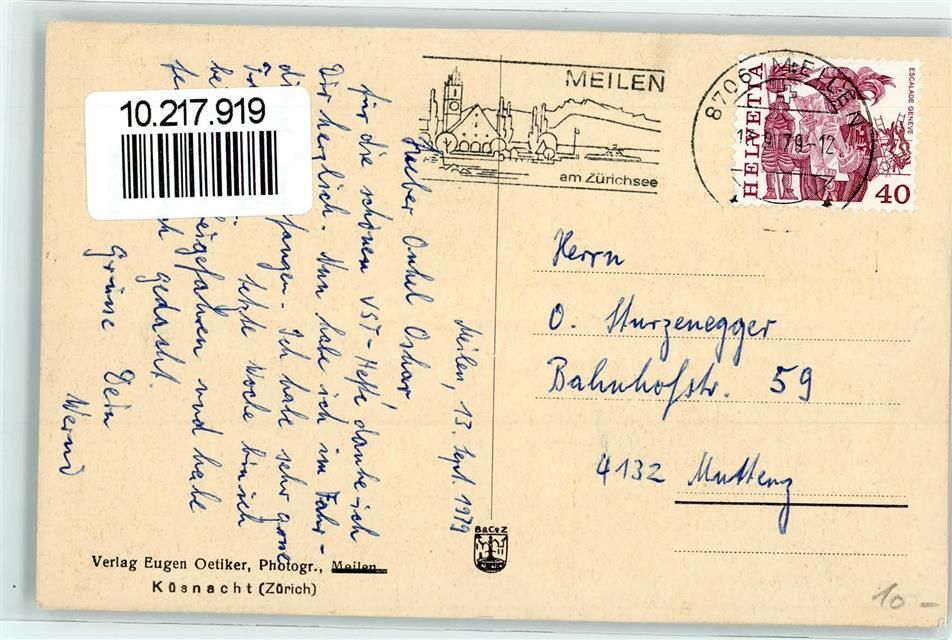 10.217.919
MEILEN
am Zürichsee
8706 MEILEN
9.79-12
HELVETIA
ESCALADE GENÈVE
40
Meilen, 13. Sept. 1979
Lieber Onkel Oskar,
für die schönen VST-Hefte danke ich
Dir herzlich. Nun habe ich im Fahr-
fangen. Ich habe sehr grosse
letzte Woche bin ich
beigefahren und habe
gedacht.
Grüsse Dein
Werner
Herrn
O. Sturzenegger
Bahnhofstr. 59
4132 Muttenz
B&CoZ
Verlag Eugen Oetiker, Photogr., Meilen
Küsnacht (Zürich)
10 –